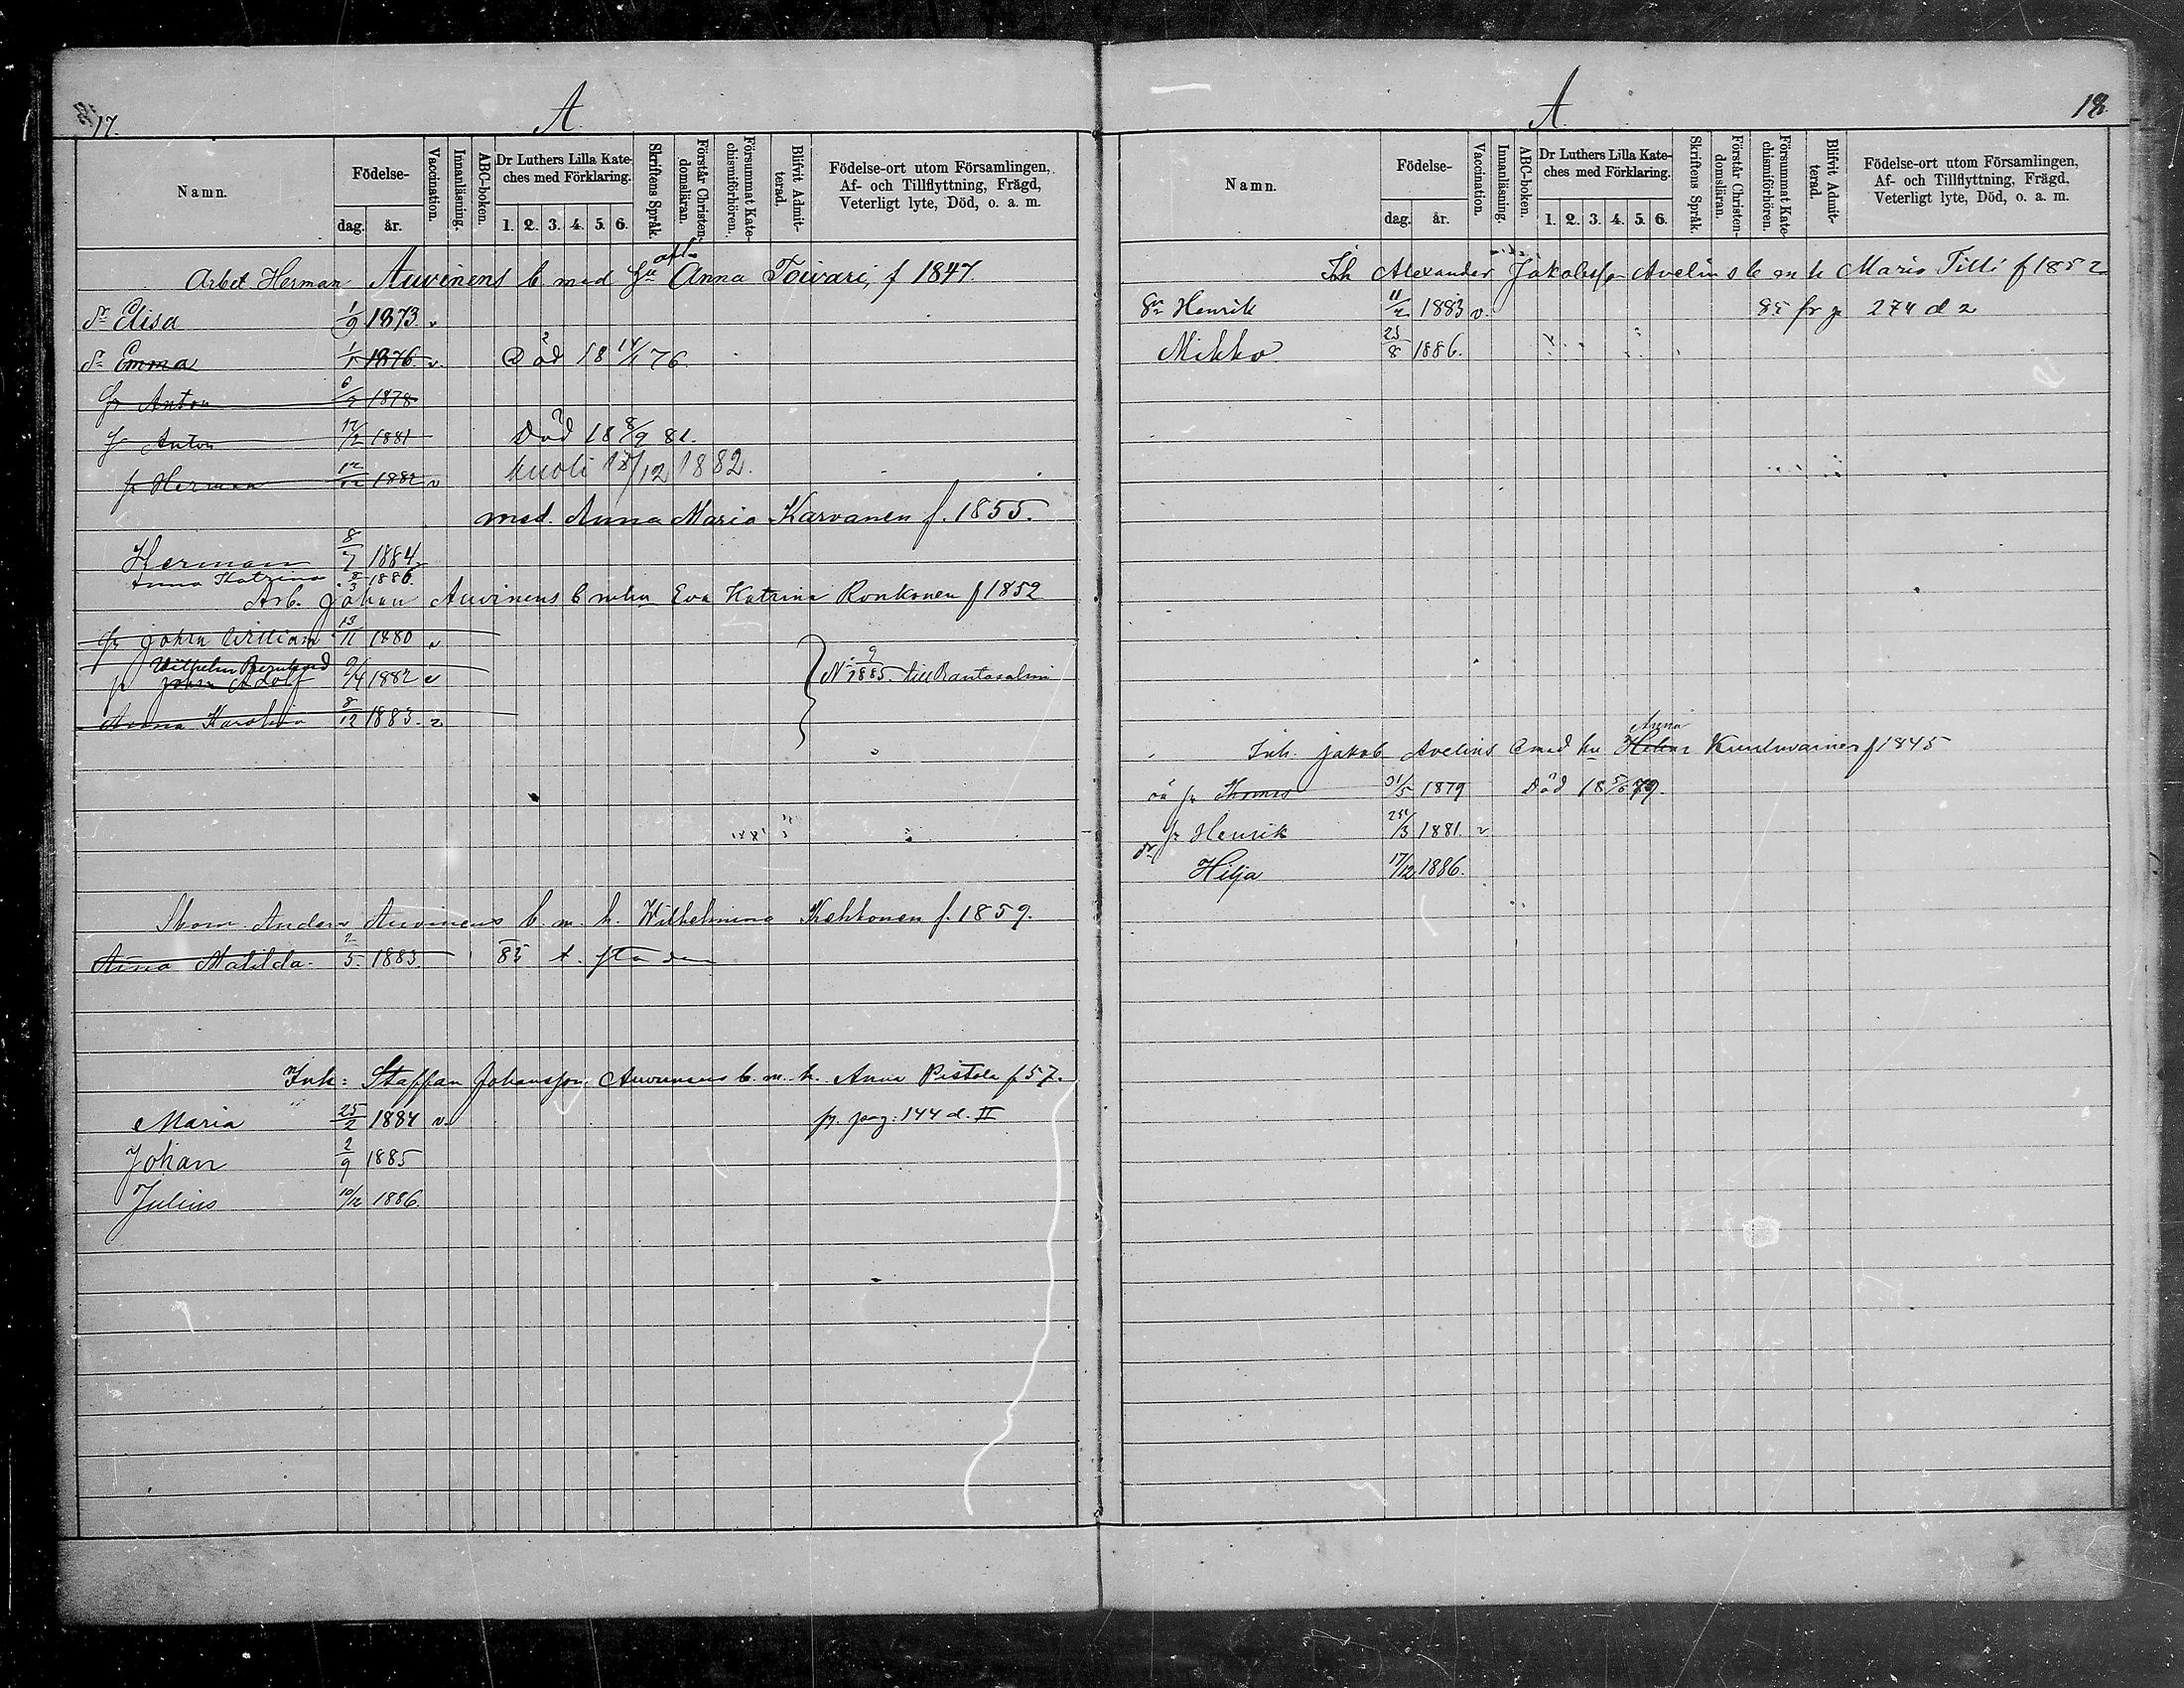 17.
A
Namn.
Födelse-
dag. år.
Vaccination.
Innanläsning.
ABC-boken.
Dr Luthers Lilla Kate-
ches med Förklaring.
1. 2. 3. 4. 5. 6.
Skriftens Språk.
Förstår Christen-
domsläran.
Försummat Kate-
chismiförhören.
Blifvit Admit-
terad.
Födelse-ort utom Församlingen,
Af- och Tillflyttning, Frägd,
Veterligt lyte, Död, o. a. m.
Arbet Herman Auvinens b med Hu Anna Toivari, f 1847.
Elisa 1/9 1873. v
Emma 1/1 1876. v. Död 18 14/1 76.
Anton 6/7 1878
Anton 17/2 1881 Död 18 8/9 81.
Herman 12/12 1882 v kuoli 18/12 1882.
med. Anna Maria Karvanen f. 1855.
Herman 8/7 1884
Anna Katrina 8/3 1886.
Arb. Johan Auvinens b m hu Eva Katrina Ronkonen f 1852
Johan William 13/11 1880 v
Wilhelm Bernhard
Johan Adolf 9/4 1882 v
N: 9/1885. till Rantasalmi
Anna Karolina 8/12 1883. v
Anders Auvinens b. m. h. Wilhelmina Kekkonen f. 1859.
Aina Matilda. 2/5. 1883. 83
Inh: Staffan Johansson Auvinens b. m. h. Anna Pistola f 57.
Maria 25/2 1884 v. fr. pag. 144 d. II
Johan 2/9 1885
Julius 10/12 1886.
A
18
Namn.
Födelse-
dag. år.
Vaccination.
Innanläsning.
ABC-boken.
Dr Luthers Lilla Kate-
ches med Förklaring.
1. 2. 3. 4. 5. 6.
Skriftens Språk.
Förstår Christen-
domsläran.
Försummat Kate-
chismiförhören.
Blifvit Admit-
terad.
Födelse-ort utom Församlingen,
Af- och Tillflyttning, Frägd,
Veterligt lyte, Död, o. a. m.
Alexander Jakobsson Avelins b m h Maria Tilli f 1852
Henrik 1883 v. 85 fr p 274 d 2
Mikko 25/8 1886.
Anna
Inh. Jakob Avelins b med hu Helena Kuuluvainen f 1845
Thomas 31/5 1879 Död 18 5/6 79.
Henrik 25/3 1881. v
Hilja 17/12 1886.